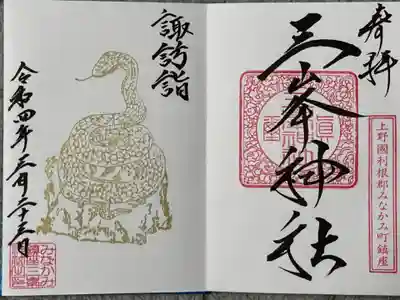 奉拝
三峯神社
上野國利根郡みなかみ町鎮座
諏訪詣
令和四年三月二十三日
みなかみ